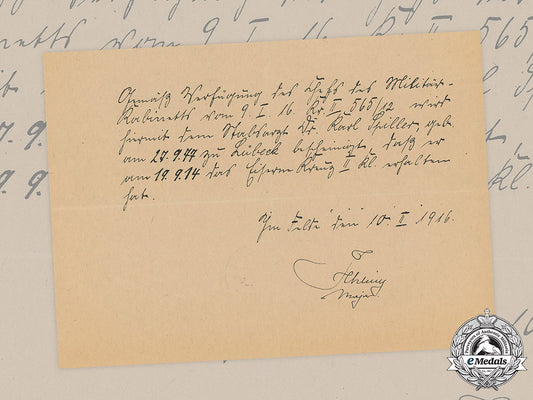 Gemäß Verfügung des Chefs des Militär-
Kabinetts vom 9. I. 16. Nr. II 565/12 wird
hiermit dem Stabsarzt Dr. Karl Spiller, geb.
am 27.9.77 zu Lübeck bescheinigt, daß er
am 19.9.14 das Eiserne Kreuz II Kl. erhalten
hat.
Im Felde den 10. II. 1916.
Major
eMedals